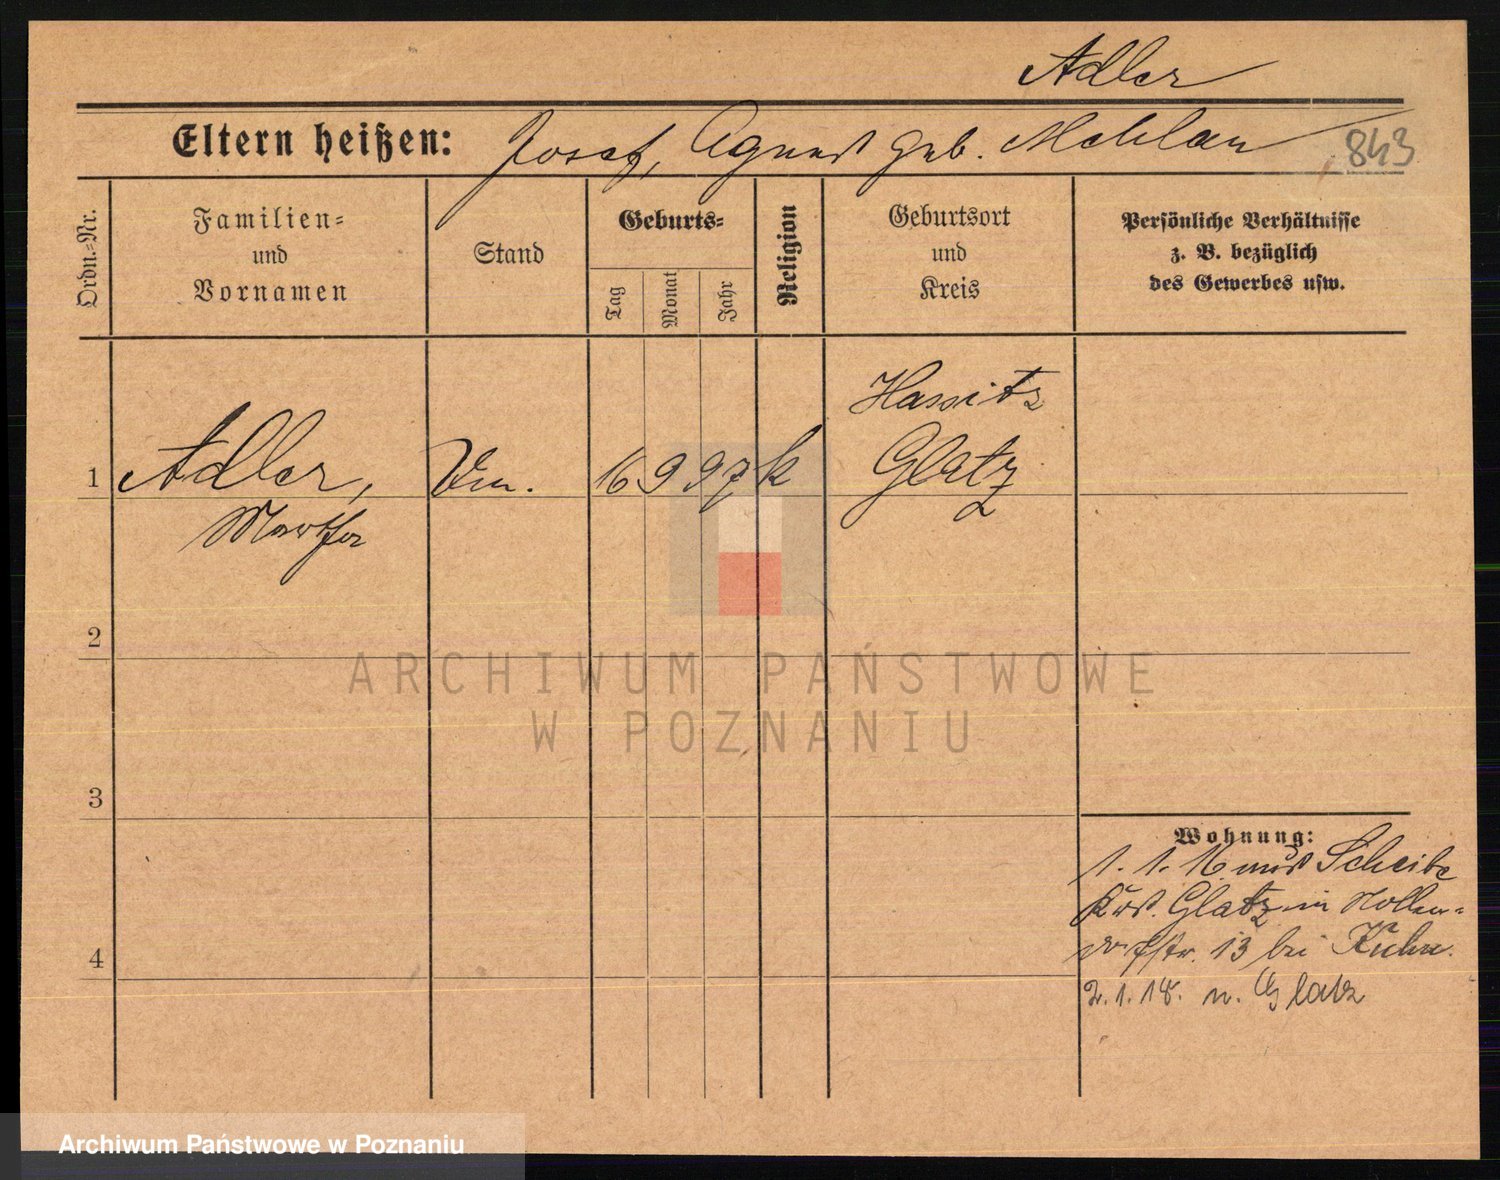 Adler
Eltern heißen: Josef, Agnes geb. Mehlan
843
Ordn.=Nr.
Familien=
und
Vornamen
Stand
Geburts=
Tag
Monat
Jahr
Religion
Geburtsort
und
Kreis
Persönliche Verhältnisse
z. B. bezüglich
des Gewerbes usw.
Hassitz
1 Adler, 16 9 97 k Glatz
Martha
2
ARCHIWUM PAŃSTWOWE
W POZNANIU
3
Wohnung:
1. 1. 16 aus Scheibe
Krs. Glatz in Nollen=
4
dorfstr. 13 bei Kuhn.
2. 1. 18. n. Glatz
Archiwum Państwowe w Poznaniu